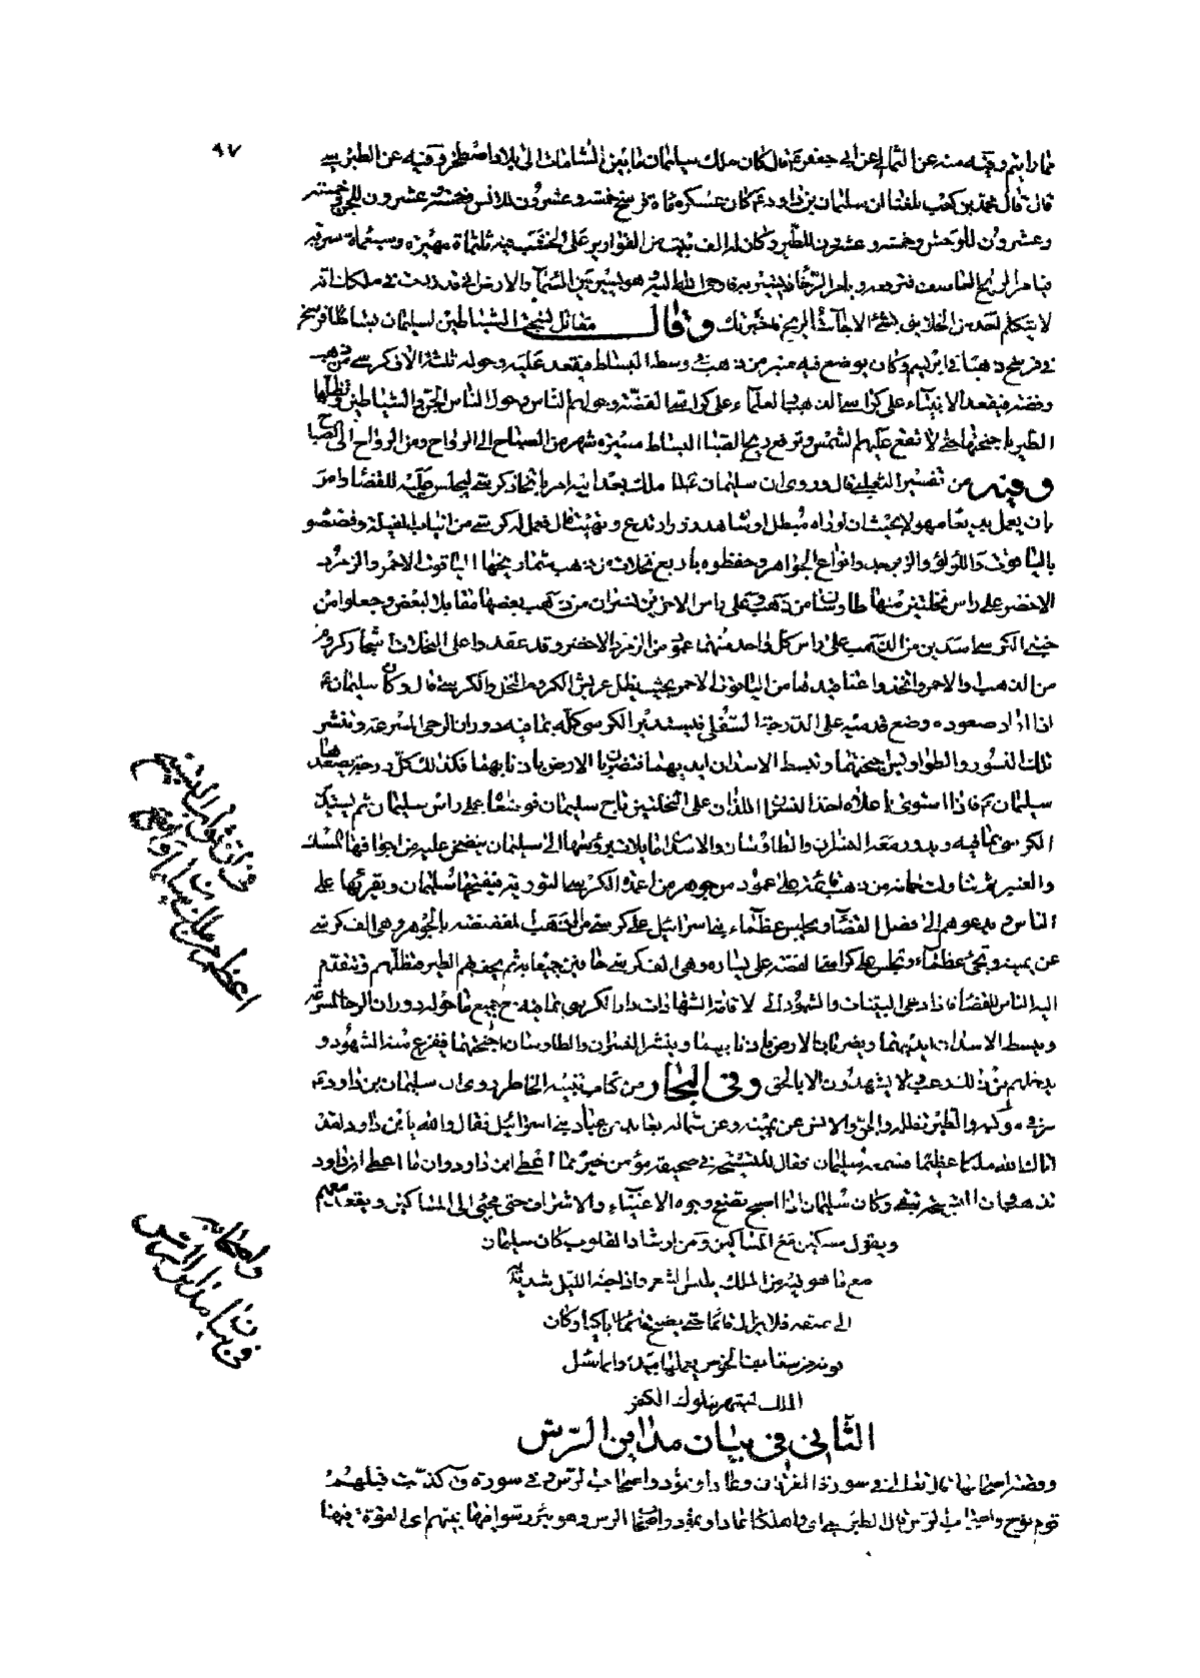 ٩٧
مما رايتم وفيه منه عن الثمالي عن ابي جعفر ع قال كان ملك سليمان ما بين الشامات الى بلاد اصطخر وفيه عن الطبرسي
قال قال محمد بن كعب بلغنا ان سليمان بن داود ع كان عسكره مائة فرسخ خمسة وعشرون للانس وخمسة وعشرون للجن وخمسة
وعشرون للوحش وخمسة وعشرون للطير وكان له الف بيت من القوارير على الخشب فيه ثلثمائة مهيرة وسبعمائة سرية
فيامر الريح العاصف فترفعه ويامر الرخاء فتسير به فاوحى الله اليه وهو يسير بين السماء والارض اني قد زدت في ملكك انه
لا يتكلم احد من الخلايق بشئ الا جاءت الريح فاخبرتك وقال مقاتل نسجت الشياطين لسليمان بساطا فرسخ
في فرسخ ذهبا في ابريسم وكان يوضع فيه منبر من ذهب في وسط البساط فيقعد عليه وحوله ثلثة الاف كرسي من ذهب
وفضة فيقعد الانبياء على كراسي الذهب والعلماء على كراسي الفضة وحولهم الناس وحول الناس الجن والشياطين وتظلها
الطير باجنحتها حتى لا تقع عليهم الشمس وترفع ريح الصبا البساط مسيرة شهر من الصباح الى الرواح ومن الرواح الى الصباح
وفيه من تفسير الثعلبي قال وروى ان سليمان لما ملك بعد ابيه امر باتخاذ كرسي ليجلس عليه للقضاء وامر
بان يعمل بديعا مهولا بحيث ان لو راه مبطل او شاهد زور ارتدع وتهيب قال فعمل له كرسي من انياب الفيلة وفصصوه
بالياقوت واللؤلؤ والزبرجد وانواع الجواهر وحففوه باربع نخلات من ذهب شماريخها الياقوت الاحمر والزمرد
الاخضر على راس نخلتين منها طاوسان من ذهب وعلى راس الاخرين نسران من ذهب بعضها مقابل لبعض وجعلوا من
جنبي الكرسي اسدين من الذهب على راس كل واحد منهما عمود من الزمرد الاخضر وقد عقدوا على النخلات اشجار كروم
من الذهب الاحمر واتخذوا عناقيدها من الياقوت الاحمر بحيث يظل عريش الكروم النخل والكرسي قال وكان سليمان ع
اذا اراد صعوده وضع قدميه على الدرجة السفلى فيستدير الكرسي كله بما فيه دوران الرحى المسرعة وتنشر
تلك النسور والطواويس اجنحتها وتبسط الاسدان ايديهما فتضربان الارض باذنابهما فكذلك كل درجة يصعدها
سليمان ع فاذا استوى باعلاه اخذ النسران اللذان على النخلتين تاج سليمان فوضعاه على راس سليمان ثم يستدير
الكرسي بما فيه ويدور معه النسران والطاوسان والاسدان مايلات برؤسها الى سليمان ينضحن عليه من اجوافها المسك
والعنبر ثم تناولت حمامة من ذهب قائمة على عمود من جوهر من اعمدة الكرسي التورية فيفتحها سليمان ويقرئها على
الناس ويدعوهم الى فصل القضاء ويجلس عظماء بني اسرائيل على كرسي من الذهب المفصصة بالجوهر وهي الف كرسي
عن يمينه وتجئ عظماء وتجلس على كراسي الفضة على يساره وهي الف كرسي حافين جميعا به ثم يحف بهم الطير فتظلهم وتتقدم
اليه الناس للقضاء فاذا دعى البينات والشهود الى اقامة الشهادات دار الكرسي بما فيه مع جميع ما حوله دوران الرحا المسرعة
ويبسط الاسدان ايديهما ويضربان الارض باذنابهما وينشر النسران والطاوسان اجنحتهما فيفزع منه الشهود و
يدخلهم من ذلك رعب ولا يشهدون الا بالحق وفي البحار من كتاب تنبيه الخاطر روى ان سليمان بن داود ع
مر في موكبه والطير تظله والجن والانس عن يمينه وعن شماله بعابد من عباد بني اسرائيل فقال والله يا بن داود لقد
اتاك الله ملكا عظيما فسمعه سليمان فقال لتسبيحة في صحيفة مؤمن خير مما اعطى ابن داود وان ما اعطى ابن داود
تذهب وان التسبيحة تبقى وكان سليمان اذا اصبح تصفح وجوه الاغنياء والاشراف حتى يجئ الى المساكين ويقعد معهم
ويقول مسكين مع المساكين ومن ارشاد القلوب كان سليمان
مع ما هو فيه من الملك يلبس الشعر واذا جنه الليل شد يديه
الى عنقه فلا يزال قائما حتى يصبح قائما باكيا وكان
قوته من سفايف الخوص يعملها بيده وانما سئل
الملك ليقهر ملوك الكفر
الثاني في بيان مداين الرس
وقصة اصحابها قال تعالى في سورة الفرقان وعادا وثمود واصحاب الرس وفي سورة ق كذبت قبلهم
قوم نوح واصحاب الرس قال الطبرسي اي واهلكنا عادا وثمود واصحاب الرس وهو بئر رسوا فيها نبيهم اي القوه فيها